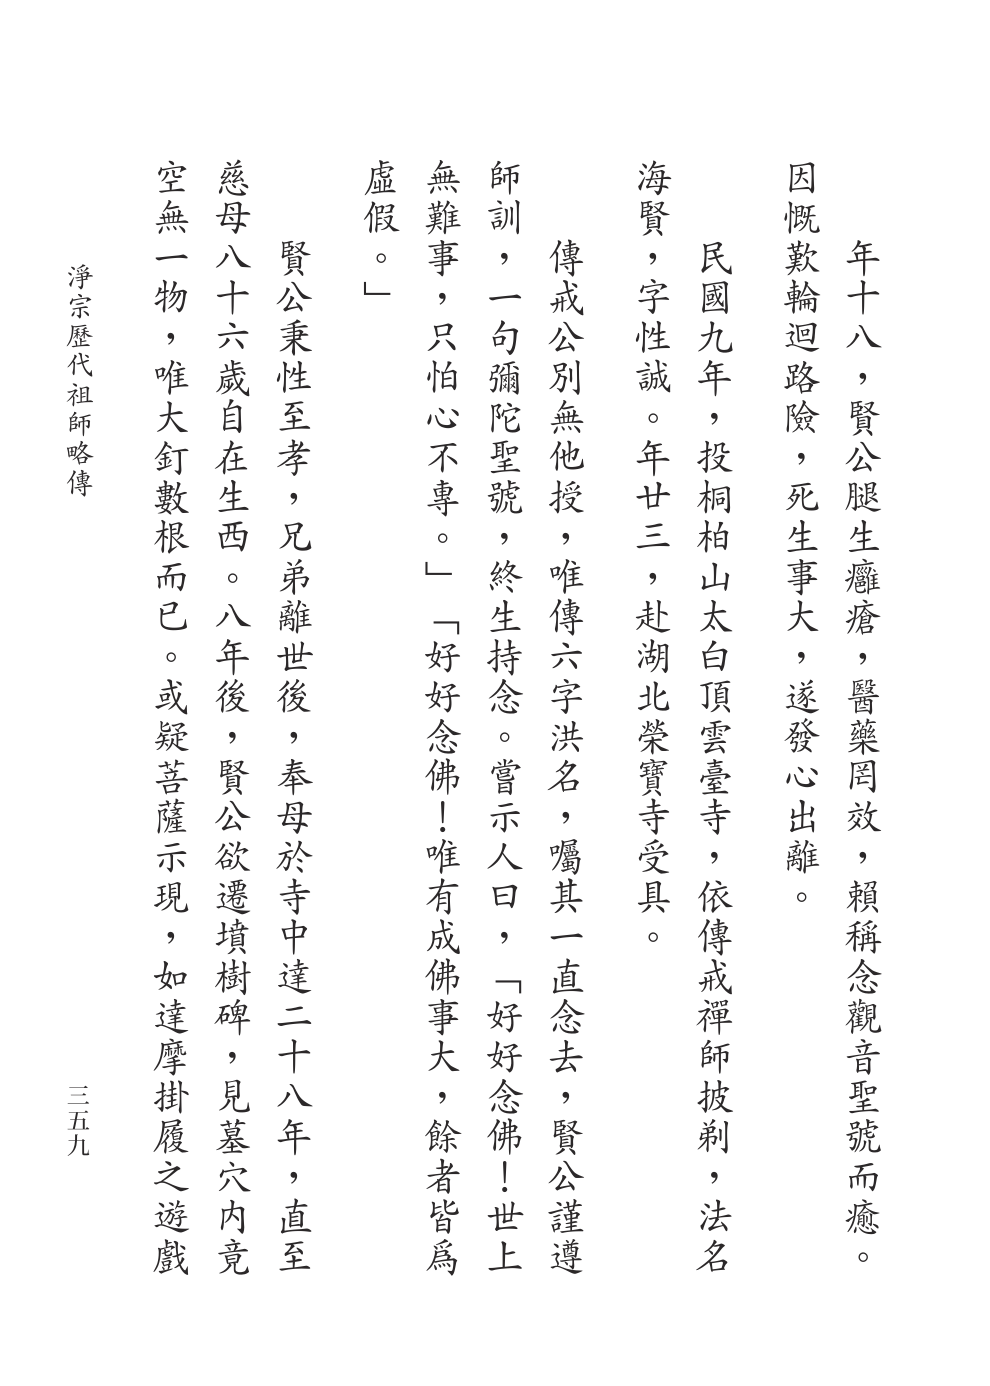 年十八，賢公腿生癰瘡，醫藥罔效，賴稱念觀音聖號而癒。
因慨歎輪迴路險，死生事大，遂發心出離。
民國九年，投桐柏山太白頂雲臺寺，依傳戒禪師披剃，法名
海賢，字性誠。年廿三，赴湖北榮寶寺受具。
傳戒公別無他授，唯傳六字洪名，囑其一直念去，賢公謹遵
師訓，一句彌陀聖號，終生持念。嘗示人曰，「好好念佛！世上
無難事，只怕心不專。」「好好念佛！唯有成佛事大，餘者皆爲
虛假。」
賢公秉性至孝，兄弟離世後，奉母於寺中達二十八年，直至
慈母八十六歲自在生西。八年後，賢公欲遷墳樹碑，見墓穴内竟
空無一物，唯大釘數根而已。或疑菩薩示現，如達摩掛履之遊戲
淨宗歷代祖師略傳
三五九